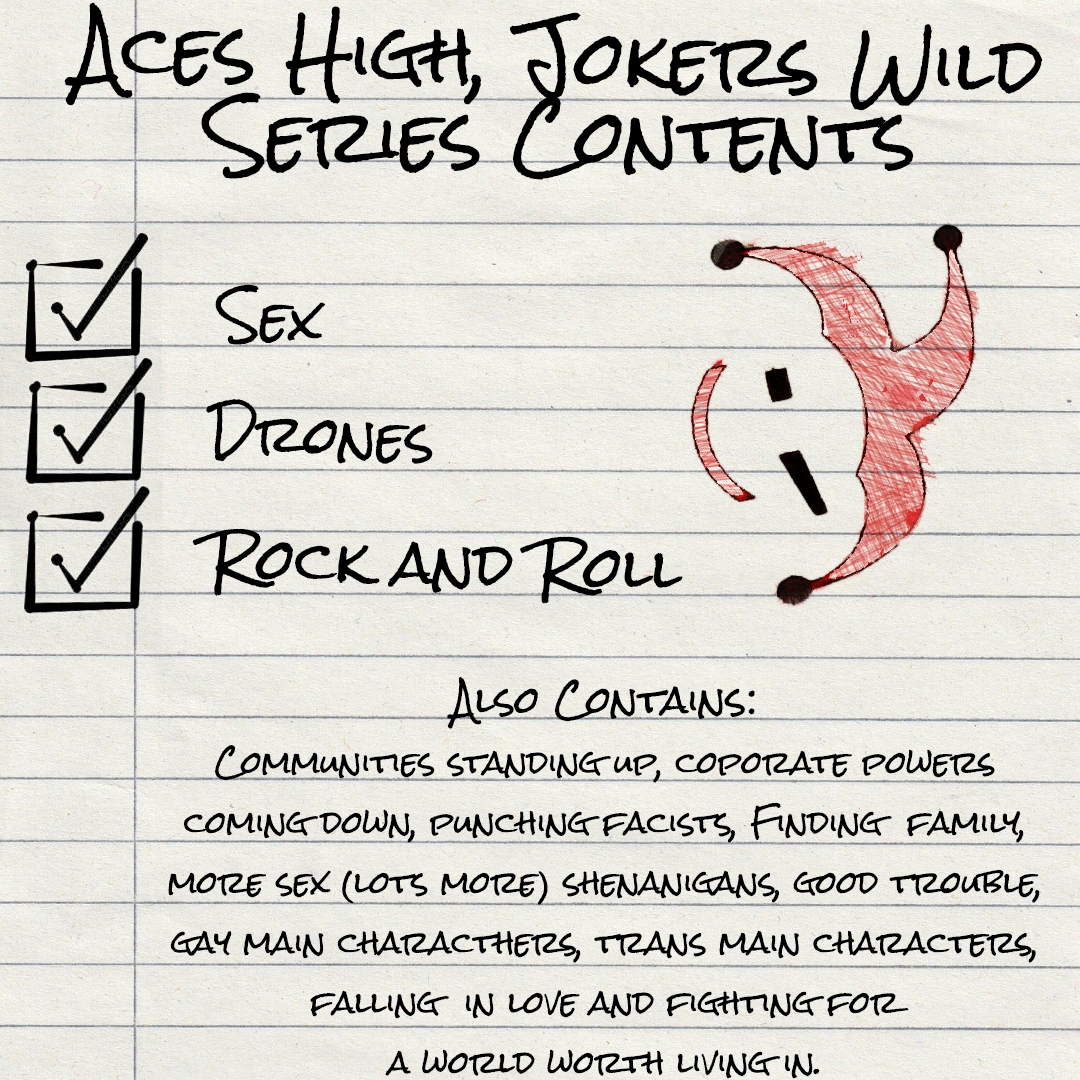 Aces High, Jokers Wild
Series Contents
Sex
Drones
Rock and Roll
Also Contains:
Communities standing up, coporate powers
coming down, punching facists, Finding family,
more sex (lots more) shenanigans, good trouble,
gay main characthers, trans main characters,
falling in love and fighting for
a world worth living in.